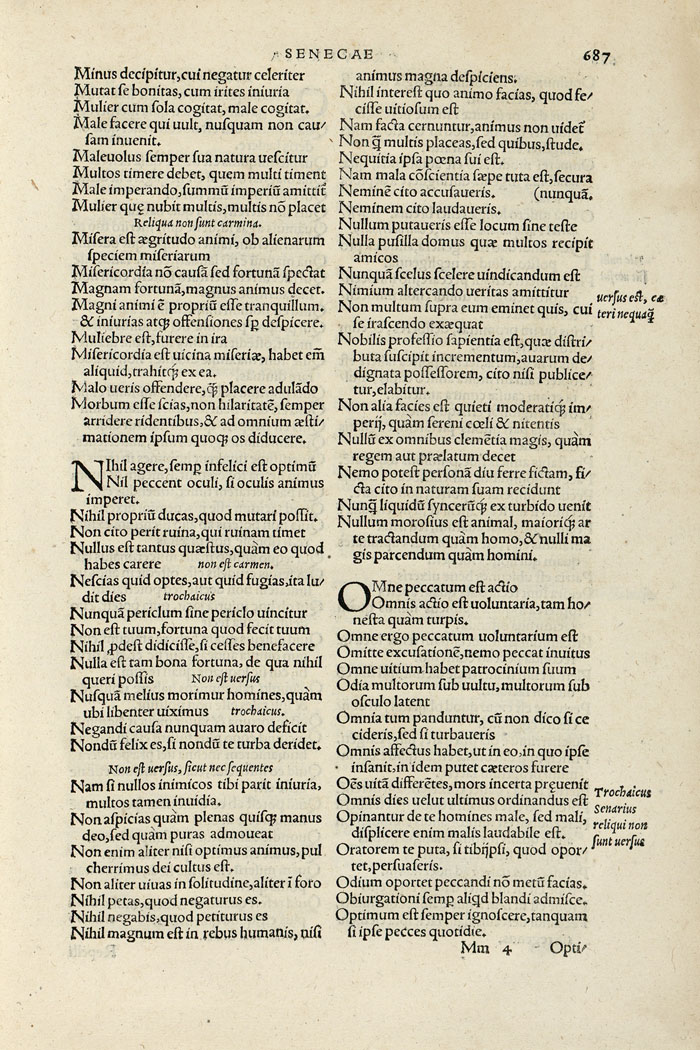 SENECAE
687
Minus decipitur, cui negatur celeriter
Mutat se bonitas, cum irites iniuria
Mulier cum sola cogitat, male cogitat.
Male facere qui uult, nusquam non cau⸗
sam inuenit.
Maleuolus semper sua natura uescitur
Multos timere debet, quem multi timent
Male imperando, summũ imperiũ amittit̃
Mulier quę nubit multis, multis nõ placet
Reliqua non sunt carmina.
Misera est ægritudo animi, ob alienarum
speciem miseriarum
Misericordia nõ causã sed fortunã spectat
Magnam fortunã, magnus animus decet.
Magni animi ẽ propriũ esse tranquillum.
& iniurias atq; offensiones sꝑ despicere.
Muliebre est, furere in ira
Misericordia est uicina miseriæ, habet em̃
aliquid, trahitq́; ex ea.
Malo ueris offendere, q̃ꝫ placere adulãdo
Morbum esse scias, non hilaritatẽ, semper
arridere ridentibus, & ad omnium æsti⸗
mationem ipsum quoq; os diducere.
NIhil agere, semꝑ infelici est optimũ
Nil peccent oculi, si oculis animus
imperet.
Nihil propriũ ducas, quod mutari possit.
Non cito perit ruina, qui ruinam timet
Nullus est tantus quæstus, quàm eo quod
habes carere non est carmen.
Nescias quid optes, aut quid fugias, ita lu⸗
dit dies trochaicus
Nunquã periclum sine periclo uincitur
Non est tuum, fortuna quod fecit tuum
Nihil ꝓdest didicisse, si cesses benefacere
Nulla est tam bona fortuna, de qua nihil
queri possis Non est uersus
Nusquã melius morimur homines, quàm
ubi libenter uiximus trochaicus.
Negandi causa nunquam auaro deficit
Nondũ felix es, si nondũ te turba deridet.
Non est uersus, sicut nec sequentes
Nam si nullos inimicos tibi parit iniuria,
multos tamen inuidia.
Non aspicias quàm plenas quisq; manus
deo, sed quàm puras admoueat
Non enim aliter nisi optimus animus, pul
cherrimus dei cultus est.
Non aliter uiuas in solitudine, aliter ĩ foro
Nihil petas, quod negaturus es.
Nihil negabis, quod petiturus es
Nihil magnum est in rebus humanis, nisi
animus magna despiciens.
Nihil interest quo animo facias, quod fe⸗
cisse uitiosum est
Nam facta cernuntur, animus non uidet̃
Non q̃ multis placeas, sed quibus, stude.
Nequitia ipsa pœna sui est.
Nam mala cõscientia sæpe tuta est, secura
Neminẽ cito accusaueris. (nunquã.
Neminem cito laudaueris.
Nullum putaueris esse locum sine teste
Nulla pusilla domus quæ multos recipit
amicos
Nunquã scelus scelere uindicandum est
Nimium altercando ueritas amittitur
uersus est, cæ
Non multum supra eum eminet quis, cui
teri nequaq̃
se irascendo exæquat
Nobilis professio sapientia est, quæ distri⸗
buta suscipit incrementum, auarum de⸗
dignata possessorem, cito nisi publice⸗
tur, elabitur.
Non alia facies est quieti moderatiq́; im⸗
perij, quàm sereni cœli & nitentis
Nullũ ex omnibus clemẽtia magis, quàm
regem aut prælatum decet
Nemo potest personã diu ferre fictam, fi⸗
cta cito in naturam suam recidunt
Nunq̃ liquidũ syncerũq́; ex turbido uenit
Nullum morosius est animal, maioriq́; ar
te tractandum quàm homo, & nulli ma
gis parcendum quàm homini.
OMne peccatum est actio
Omnis actio est uoluntaria, tam ho⸗
nesta quàm turpis.
Omne ergo peccatum uoluntarium est
Omitte excusationẽ, nemo peccat inuitus
Omne uitium habet patrocinium suum
Odia multorum sub uultu, multorum sub
osculo latent
Omnia tum panduntur, cũ non dico si ce
cideris, sed si turbaueris
Omnis affectus habet, ut in eo, in quo ipse
insanit, in idem putet cæteros furere
Oẽs uitã differẽtes, mors incerta pręuenit
Trochaicus
Omnis dies uelut ultimus ordinandus est
Senarius
Opinantur de te homines male, sed mali,
reliqui non
displicere enim malis laudabile est.
sunt uersus
Oratorem te puta, si tibijpsi, quod opor⸗
tet, persuaseris.
Odium oportet peccandi nõ metũ facias.
Obiurgationi semꝑ aliqd blandi admisce.
Optimum est semper ignoscere, tanquam
si ipse pecces quotidie.
Mm 4 Opti⸗